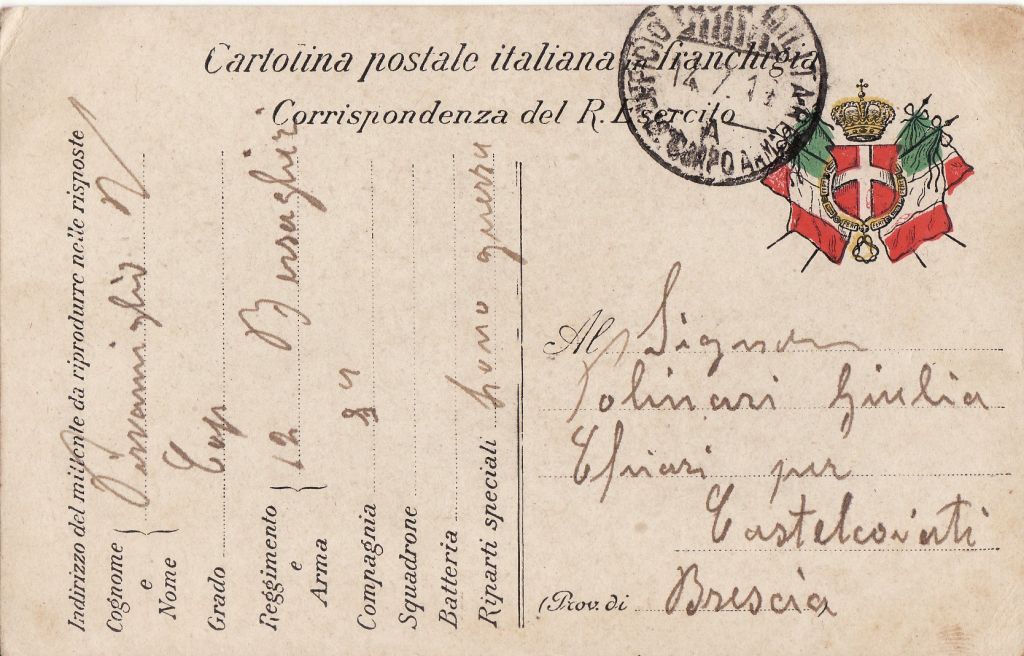 Cartolina postale italiana in franchigia
Corrispondenza del R. Esercito
UFFICIO
14.7.1
A
CORPO ARMATA
Indirizzo del mittente da riprodurre nelle risposte
Cognome
e
Nome
Grado
Cap
Reggimento
e
Arma
12 Bersaglieri
Compagnia
Squadrone
Batteria
Riparti speciali
guerra
Al Signora
Polinari Giulia
Chiari per
Castelcovati
(Prov. di Brescia